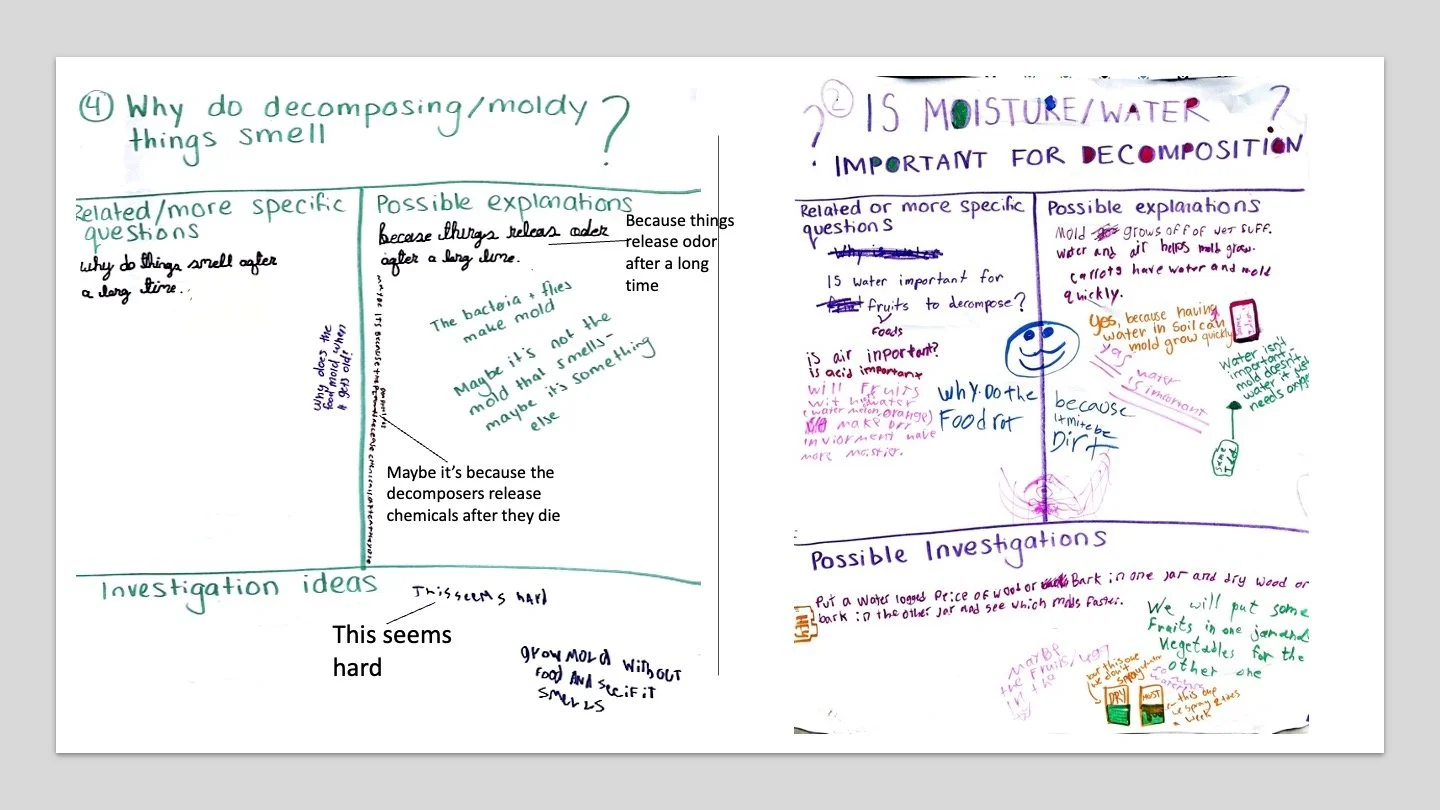 ④ Why do decomposing/moldy
things smell ?
Related/more specific
questions
why do things smell after
a long time.
Why does the
food mold when
it gets old?
Possible explanations
Becase things releas oder
after a long time.
Because things
release odor
after a long
time
The bacteria + flies
make mold
Maybe it's not the
mold that smells-
maybe it's something
else
Maybe it's because the
decomposers release
chemicals after they die
Investigation ideas
This seems hard
This seems
hard
grow mold without
food and see if it
smells
? ② IS MOISTURE/WATER ?
IMPORTANT FOR DECOMPOSITION
Related or more specific
questions
Why is water
Is water important for
fruits to decompose?
foods
is air inportant?
is acid important
will fruits
wit water
(water melon, orange)
make
inviorment have
more
why. Do the
Food rot
Possible explanations
Mold grows off of wet suff.
water and air helps mold grow.
carrots have water and mold
quickly.
Yes, because having
water in soil can
mold grow quickly
yas water
is important
Water isn't
important-
mold doesn't
water it just
needs
same
because
it mite be
Dirt
Possible Investigations
Put a water logged Peice of wood or Bark in one jar and dry wood or
bark in the other jar and see which molds faster.
HEY
We will put some
Fruits in one jar and
Vegetables for the
other one
maybe
the fruits/
but this one
we don't
spray water
DRY
MOIST
this one
we spray 2 times
a week